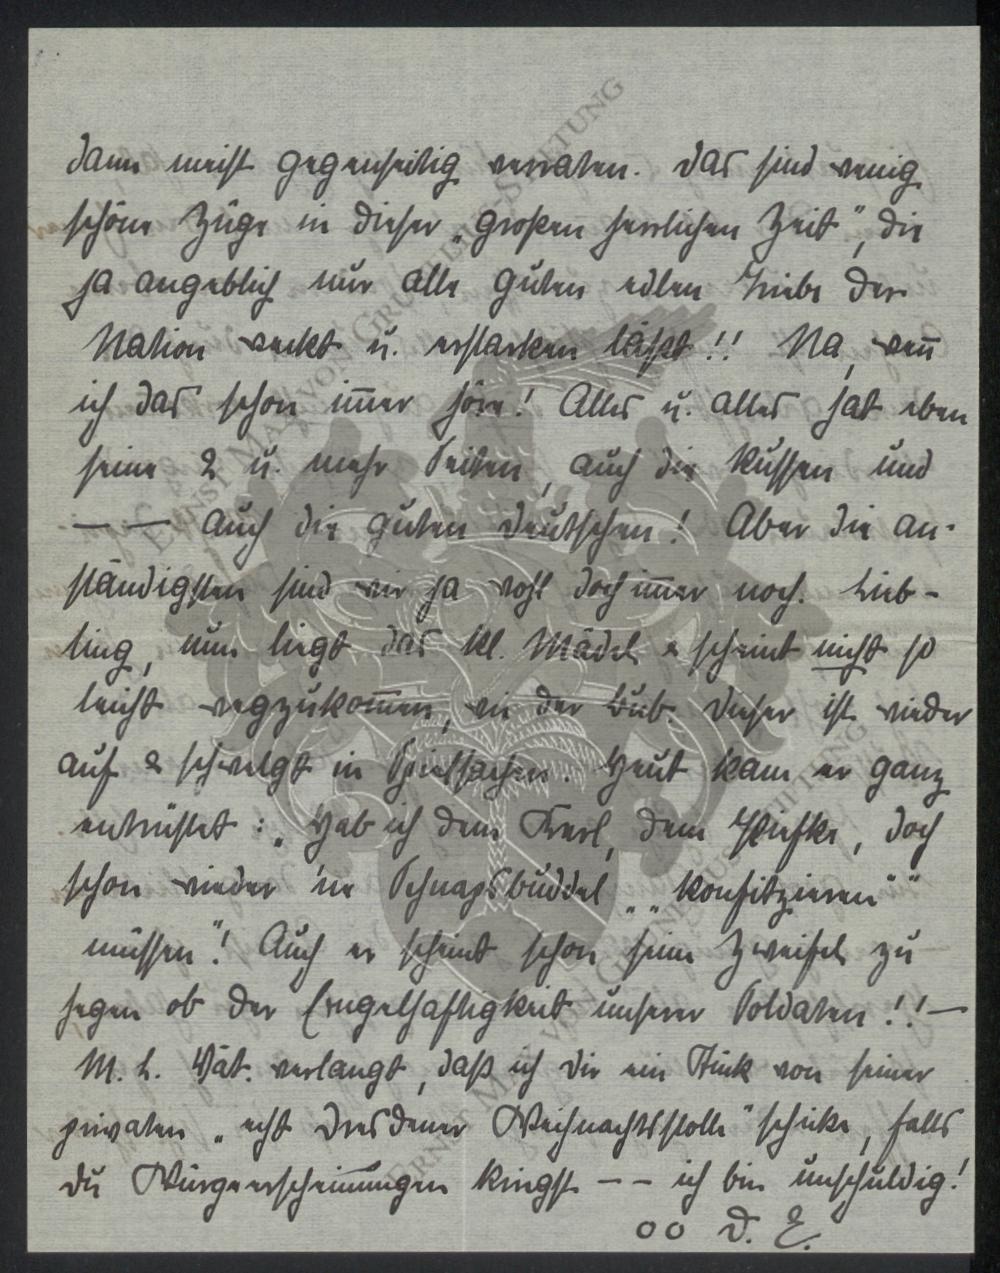 dann meist gegenseitig verraten. Das sind wenig
schöne Züge in dieser „großen herrlichen Zeit", die
ja angeblich nur alle guten edlen Triebe der
Nation weckt u. erstarken läßt!! Na, weñ
ich das schon im̄er höre! Alles u. alles hat eben
seine 2 u. mehr Seiten, auch die Russen und
— — auch die guten Deutschen! Aber die an-
ständigsten sind wir ja wohl doch im̄er noch. Lieb-
ling, nun liegt das kl. Mädel & scheint nicht so
leicht wegzukom̄en, wie der Bub. Dieser ist wieder
auf & schwelgt in Spielsachen. Heut kam er ganz
entrüstet: „Hab ich dem Kerl, dem Piefke, doch
schon wieder 'ne Schnapsbuddel „„konfitzieren""
müssen"! Auch er scheint schon seine Zweifel zu
hegen ob der Engelhaftigkeit unserer Soldaten!! —
M. L. Vät. verlangt, daß ich Dir ein Stück von seiner
privaten „echt Dresdener Weihnachtsstolle" schicke, falls
Du Würgeerscheinungen kriegst — — ich bin unschuldig!
oo D. E.
ERNST MAX VON GRUNELIUS-STIFTUNG
ERNST MAX VON GRUNELIUS-STIFTUNG